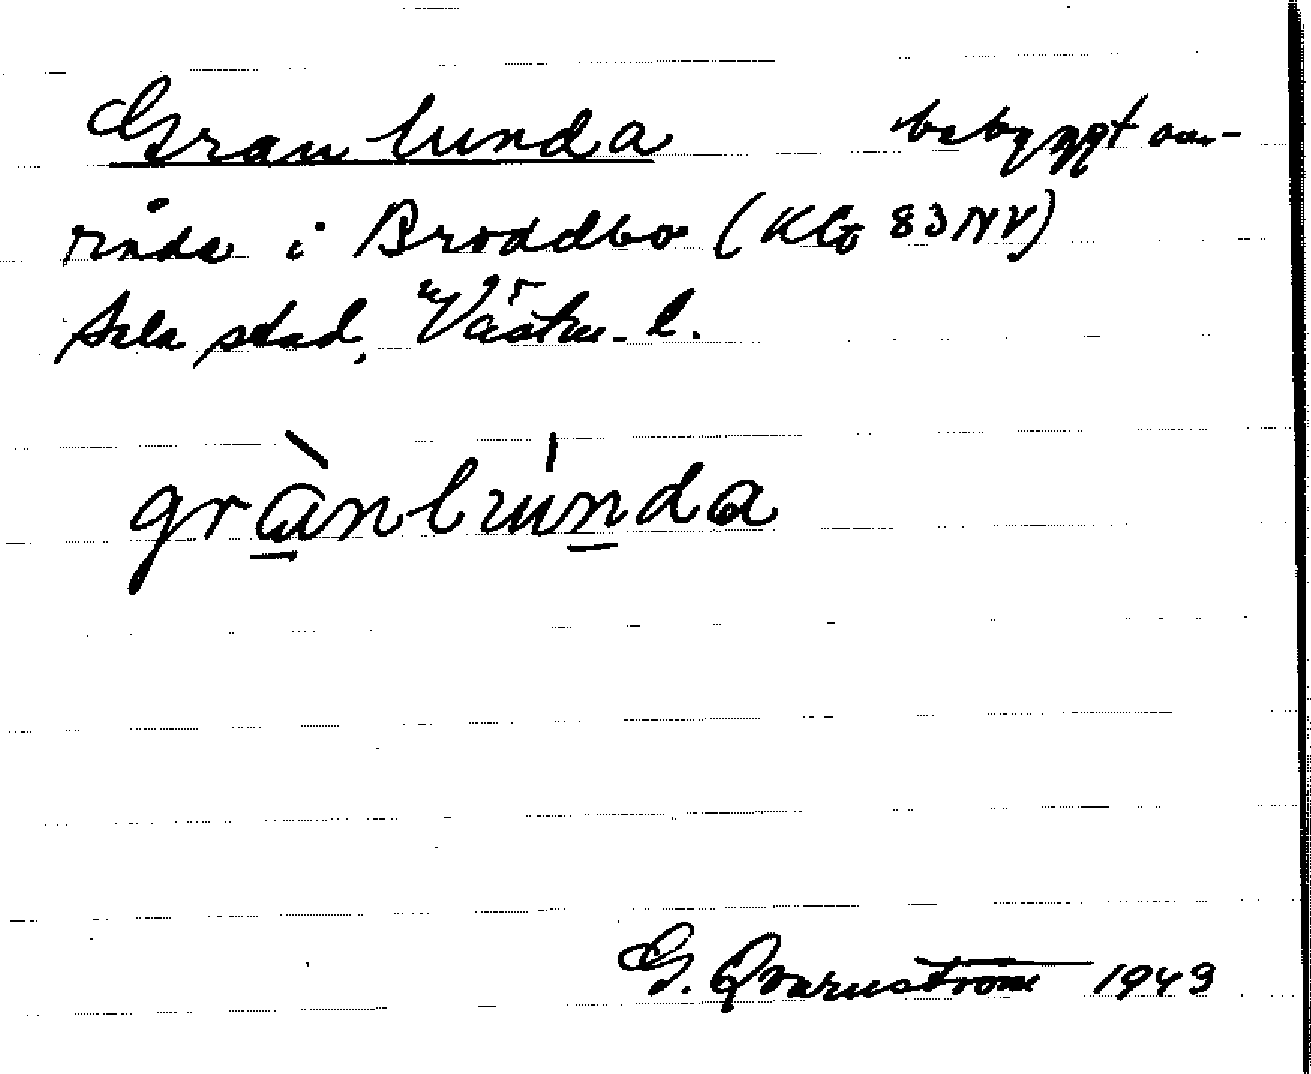 Granlunda bebyggt om-
råde i Broddbo (Kbl 83 NV)
Sala stad, Västm. l.
grànlúnda
G. Qvarnström 1949